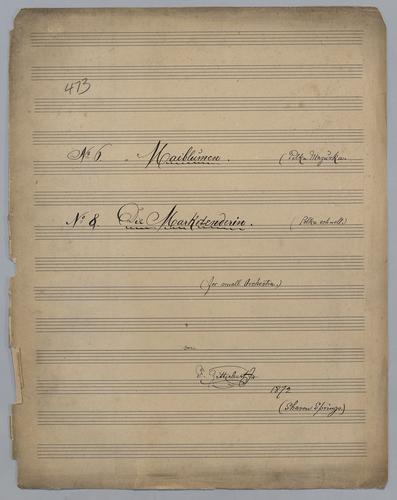 473
No 6 "Maiblümen. (Polka Mazurka.
No 8. Die Marketenderin. (Polka schnell.)
(for small Orchestra.)
von
F.
1872
(Sharon Springs.)